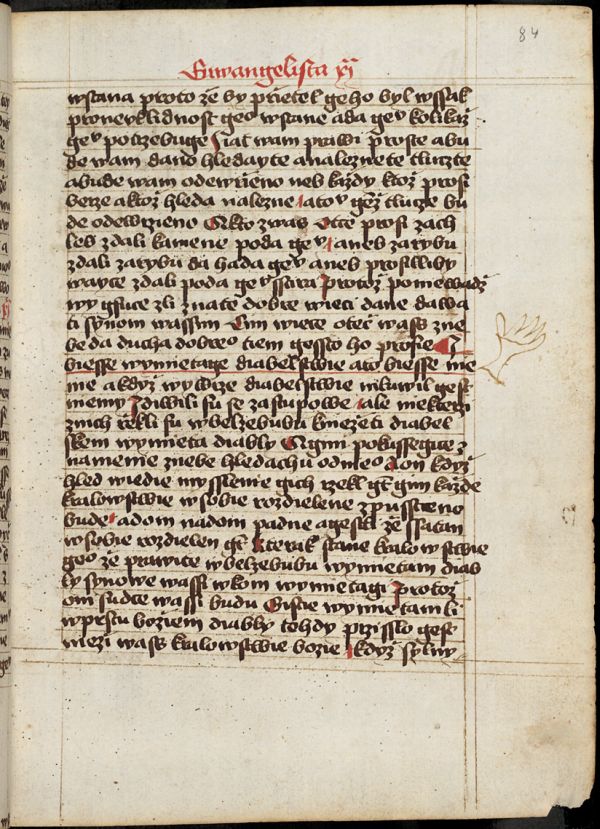 84
Euwangelista xj
wstana proto že by prietel geho byl wssak
pro neuklidnost geo wstane a da geu kolikž
geu potrzebuge J iat wam prawi proste a bu
de wam dano hledayte a naleznete tluczte
a bude wam odewrzieno neb každy ktož prosi
berze a ktož hleda nalezne a tou genž tlucze bu
de odewrzieno Ale kto z was otce prosi za ch
leb zdali kamene poda geu aneb za rybu
zdali za rybu da hada geu aneb prosilliby
wayce zdali poda geu sstira Protož poniewadž
wy gsuce zli znate dobre wieci dane dawa
ti synom wassim Cim wiece otec wass z ne
be da ducha dobreo tiem gessto ho prosie J
biesse wymietage diabelstwie a to biesse nie
me a když wywrze diabelstwie mluwil gest
niemy J diwili su se zastupowe ale niekterzi
z nich rzekli su w belzebubu kniezeti diabel
skem wymieta diably A gini pokussegice z
namenie z nebe hledachu od nieo A on když
hled wiedie myssleme gich rzekl gt gim každe
kralowstwie w sobie rozdielene zpusstieno
bude a dom na dom padne a gestli že ssatan
w sobie rozdielen gt kterak stane kralowstwie
geo že prawite w belzebubu wymietam diab
ly synowe wassi w kom wymietagi Protož
oni sudce wassi budu Gistie wymietam li
w prstu božiem diably tehdy przisslo gest
mezi wass kralowstwie bozie když sylny